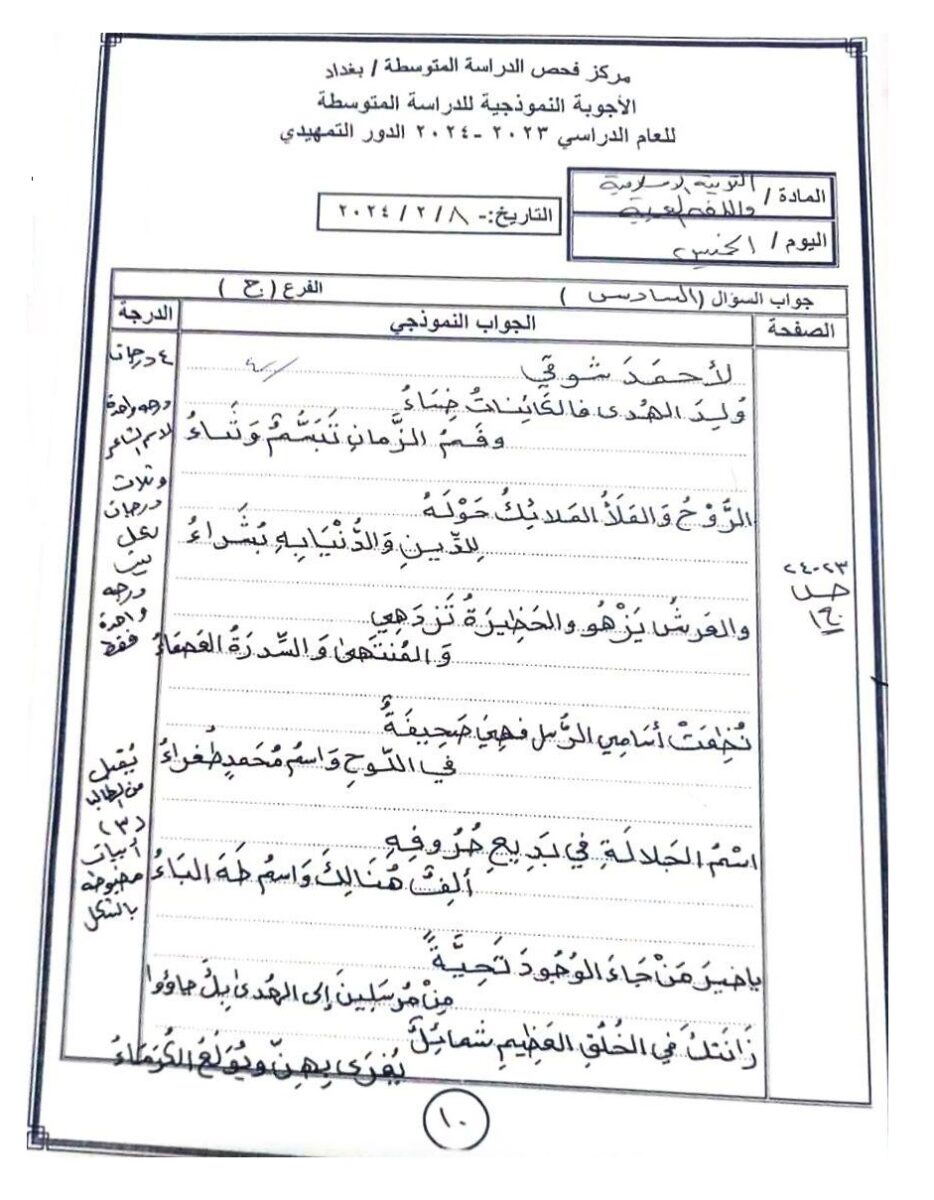 مركز فحص الدراسة المتوسطة / بغداد
الأجوبة النموذجية للدراسة المتوسطة
للعام الدراسي ٢٠٢٣ -٢٠٢٤ الدور التمهيدي
المادة / التربية الاسلامية
واللغة العربية
اليوم / الخميس
التاريخ:- ٨ / ٢ / ٢٠٢٤
جواب السؤال (السادس) الفرع ( ج )
الصفحة الجواب النموذجي الدرجة
لأحمَد شوقي
وُلِدَ الهُدى فالكائِناتُ ضِيَاءُ
وَفَمُ الزَّمانِ تَبَسُّمٌ وَثَناءُ
الرُّوْحُ وَالمَلَأُ المَلائِكُ حَوْلَهُ
لِلدِّينِ وَالدُّنْيَا بِهِ بُشَراءُ
والعَرشُ يَزْهُو والحَظِيرَةُ تَزدَهِي
وَالمُنتَهىٰ وَالسِّدرَةُ العَصمَاءُ
نُظِمَتْ أسَامِي الرُّسلِ فهِيَ صَحِيفَةٌ
في اللّوحِ وَاسْمُ مُحَمدٍ طُغراءُ
اسْمُ الجَلالَةِ في بَدِيعِ حُرُوفِهِ
ألِفٌ هُنَالِكَ وَاسمُ طَهَ البَاءُ
ياخيرَ مَنْ جَاءَ الوُجُودَ تَحِيَّةً
مِنْ مُرسَلِينَ إلى الهُدىٰ بِكَ جاؤوا
زَانَتكَ في الخُلُقِ العَظِيمِ شمائلٌ
يُغرَى بِهِنّ ويُولَعُ الكُرَمَاءُ
٤ درجات
درجه واحدة
لاسم الشاعر
وثلاث
درجات
لكل
بيت
درجه
واحدة
فقط
يُقبل
من الطالب
(٣)
أبيات
مضبوطة
بالشكل
٢٣-٢٤
١٠